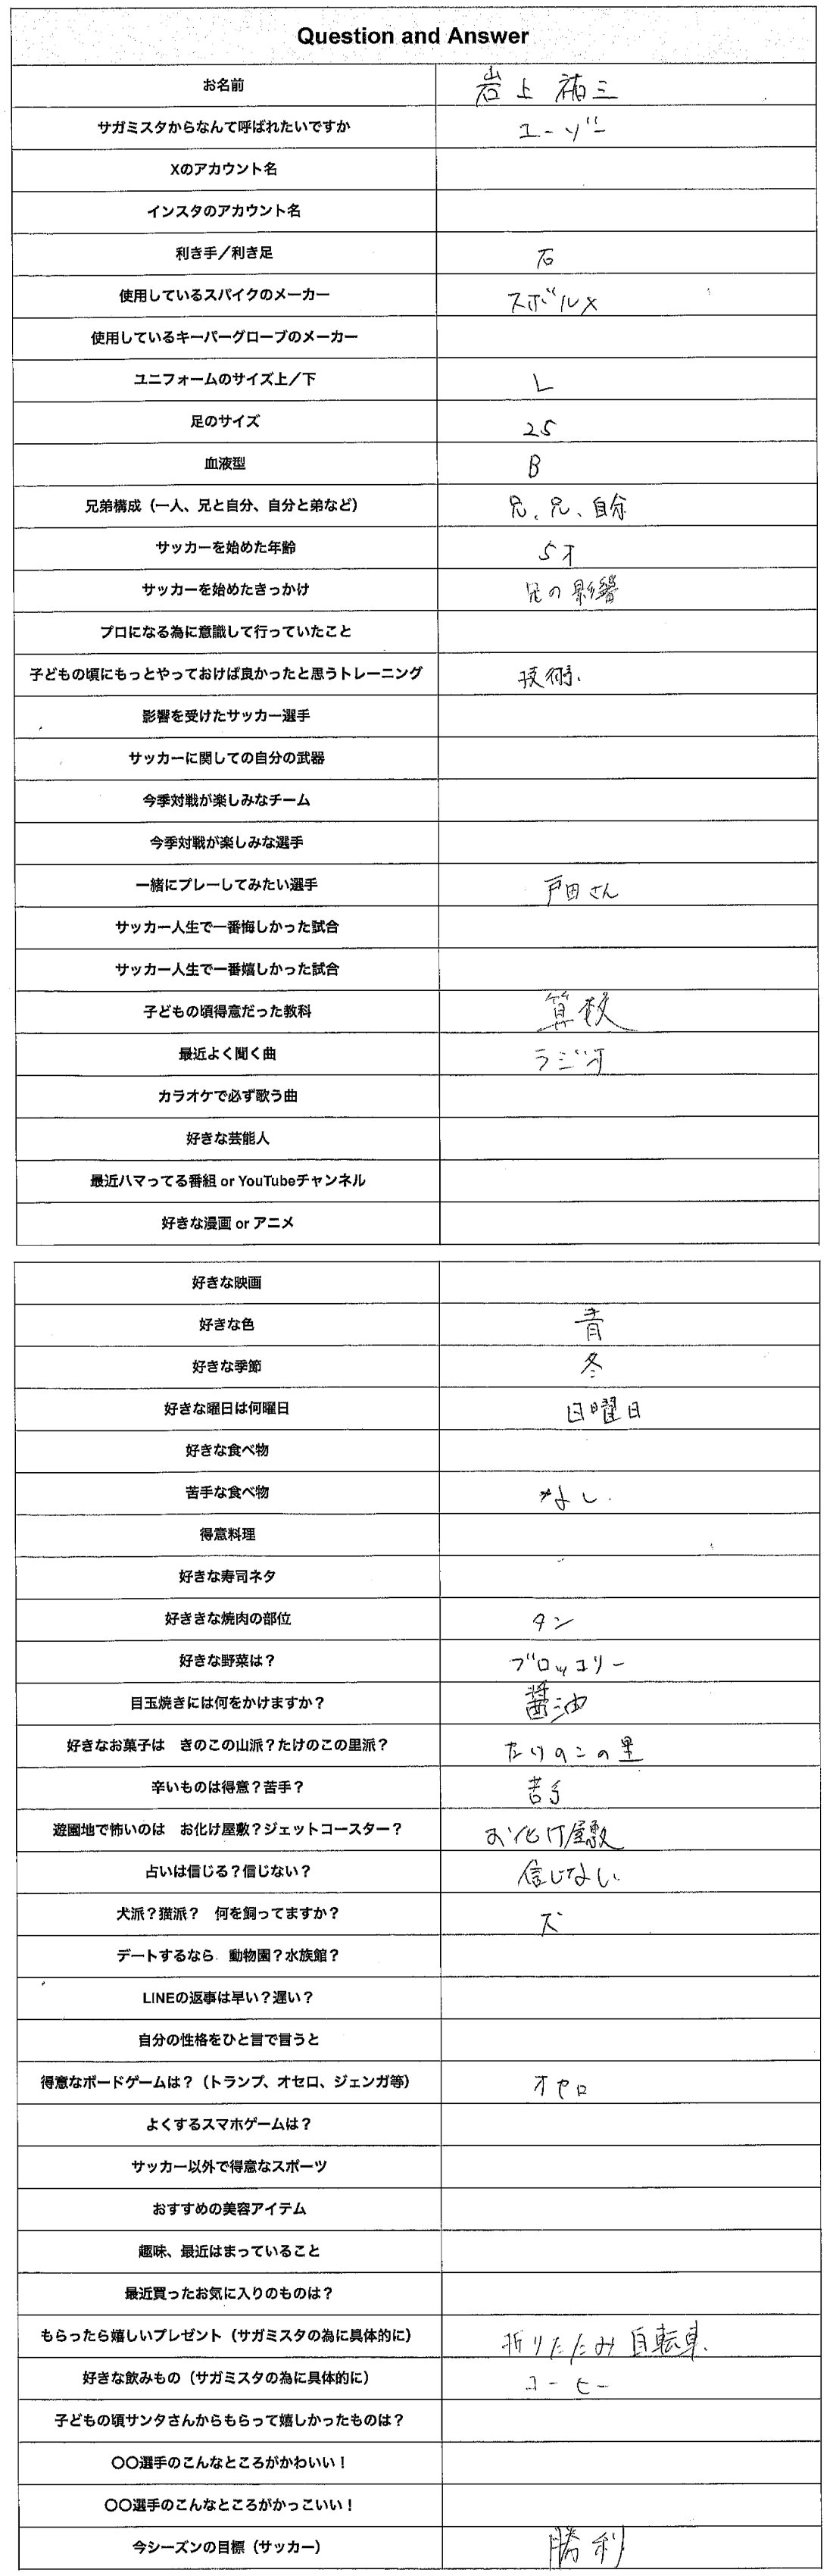 Question and Answer
お名前 岩上祐三
サガミスタからなんて呼ばれたいですか ユーゾー
Xのアカウント名
インスタのアカウント名
利き手／利き足 右
使用しているスパイクのメーカー スボルメ
使用しているキーパーグローブのメーカー
ユニフォームのサイズ上／下 L
足のサイズ 25
血液型 B
兄弟構成（一人、兄と自分、自分と弟など） 兄、兄、自分
サッカーを始めた年齢 5才
サッカーを始めたきっかけ 兄の影響
プロになる為に意識して行っていたこと
子どもの頃にもっとやっておけば良かったと思うトレーニング 技術
影響を受けたサッカー選手
サッカーに関しての自分の武器
今季対戦が楽しみなチーム
今季対戦が楽しみな選手
一緒にプレーしてみたい選手 戸田さん
サッカー人生で一番悔しかった試合
サッカー人生で一番嬉しかった試合
子どもの頃得意だった教科 算数
最近よく聞く曲 ラジオ
カラオケで必ず歌う曲
好きな芸能人
最近ハマってる番組 or YouTubeチャンネル
好きな漫画 or アニメ
好きな映画
好きな色 青
好きな季節 冬
好きな曜日は何曜日 日曜日
好きな食べ物
苦手な食べ物 なし.
得意料理
好きな寿司ネタ
好ききな焼肉の部位 タン
好きな野菜は？ ブロッコリー
目玉焼きには何をかけますか？ 醤油
好きなお菓子は　きのこの山派？たけのこの里派？ たけのこの里
辛いものは得意？苦手？ 苦手
遊園地で怖いのは　お化け屋敷？ジェットコースター？ お化け屋敷
占いは信じる？信じない？ 信じない
犬派？猫派？　何を飼ってますか？ 犬
デートするなら　動物園？水族館？
LINEの返事は早い？遅い？
自分の性格をひと言で言うと
得意なボードゲームは？（トランプ、オセロ、ジェンガ等） オセロ
よくするスマホゲームは？
サッカー以外で得意なスポーツ
おすすめの美容アイテム
趣味、最近はまっていること
最近買ったお気に入りのものは？
もらったら嬉しいプレゼント（サガミスタの為に具体的に） 折りたたみ自転車.
好きな飲みもの（サガミスタの為に具体的に） コーヒー
子どもの頃サンタさんからもらって嬉しかったものは？
〇〇選手のこんなところがかわいい！
〇〇選手のこんなところがかっこいい！
今シーズンの目標（サッカー） 勝利